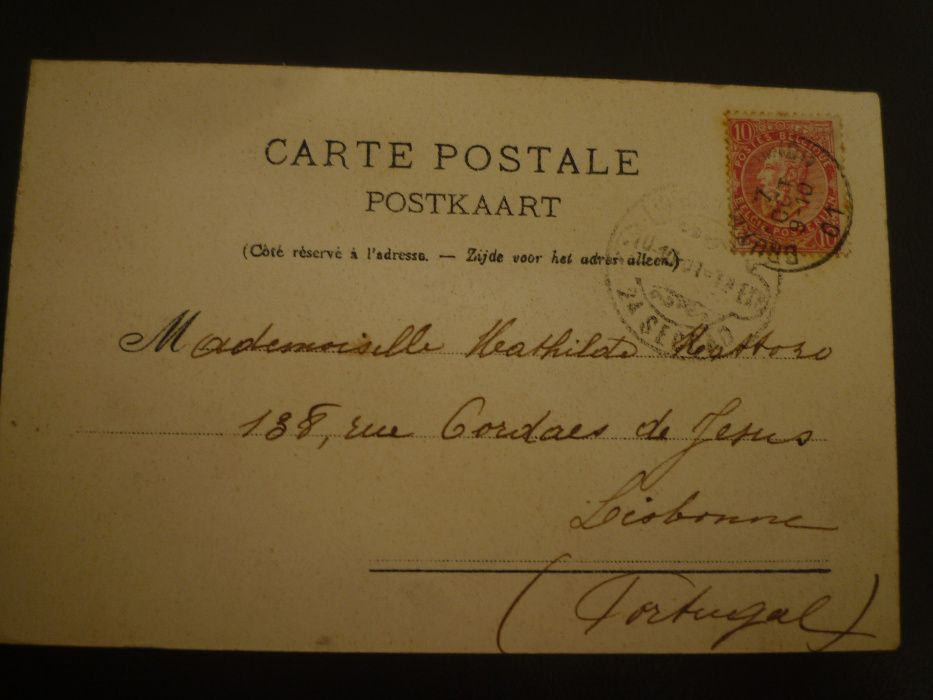 CARTE POSTALE
POSTKAART
(Côté réservé à l'adresse. — Zijde voor het adres alleen.)
10
POSTES BELGIQUE
BELGIE POSTERIJEN
10
7
OCT
9-10
01
2A SECÇÃO
Mademoiselle Mathilde Mattozo
138, rue Cordaes de Jesus
Lisbonne
(Portugal)